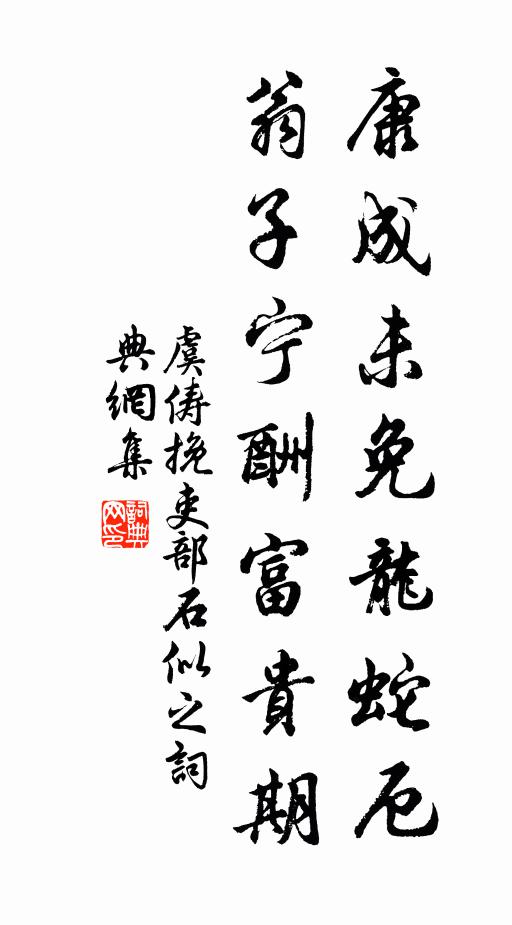 康成未免龍蛇厄
翁子宁酬富貴期
虞儔挽吏部石似之詞
典網集
詞典网印